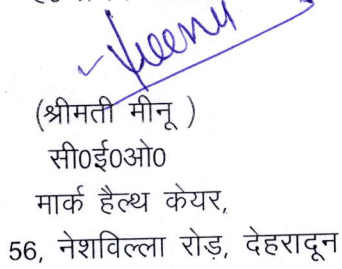 Meenu
(श्रीमती मीनू )
सी0ई0ओ0
मार्क हैल्थ केयर,
56, नेशविल्ला रोड़, देहरादून